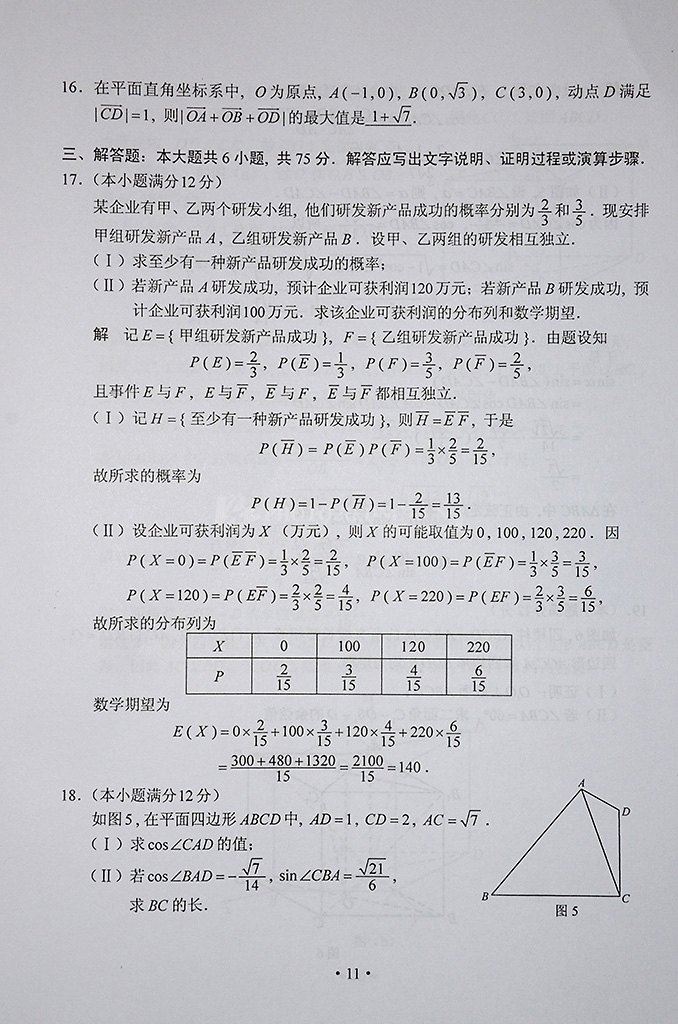 16. 在平面直角坐标系中, O为原点, A(-1,0), B(0,√3), C(3,0), 动点D满足
|CD→|=1, 则|OA→+OB→+OD→|的最大值是 1+√7.
三、解答题: 本大题共6小题, 共75分. 解答应写出文字说明、证明过程或演算步骤.
17. (本小题满分12分)
某企业有甲、乙两个研发小组, 他们研发新产品成功的概率分别为2/3和3/5. 现安排
甲组研发新产品A, 乙组研发新产品B. 设甲、乙两组的研发相互独立.
(Ⅰ)求至少有一种新产品研发成功的概率;
(Ⅱ)若新产品A研发成功, 预计企业可获利润120万元; 若新产品B研发成功, 预
计企业可获利润100万元. 求该企业可获利润的分布列和数学期望.
解 记E={甲组研发新产品成功}, F={乙组研发新产品成功}. 由题设知
P(E)=2/3, P(E̅)=1/3, P(F)=3/5, P(F̅)=2/5,
且事件E与F, E与F̅, E̅与F, E̅与F̅都相互独立.
(Ⅰ)记H={至少有一种新产品研发成功}, 则H̅=E̅F̅, 于是
P(H̅)=P(E̅)P(F̅)=1/3×2/5=2/15,
故所求的概率为
P(H)=1-P(H̅)=1-2/15=13/15.
(Ⅱ)设企业可获利润为X (万元), 则X的可能取值为0, 100, 120, 220. 因
P(X=0)=P(E̅F̅)=1/3×2/5=2/15, P(X=100)=P(E̅F)=1/3×3/5=3/15,
P(X=120)=P(EF̅)=2/3×2/5=4/15, P(X=220)=P(EF)=2/3×3/5=6/15,
故所求的分布列为
X 0 100 120 220
P 2/15 3/15 4/15 6/15
数学期望为
E(X)=0×2/15+100×3/15+120×4/15+220×6/15
=(300+480+1320)/15=2100/15=140.
18. (本小题满分12分)
如图5, 在平面四边形ABCD中, AD=1, CD=2, AC=√7.
(Ⅰ)求cos∠CAD的值;
(Ⅱ)若cos∠BAD=-√7/14, sin∠CBA=√21/6,
求BC的长.
A
D
B
C
图5
·11·